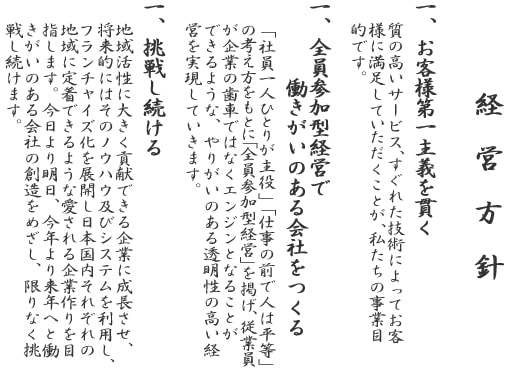 経営方針
一、お客様第一主義を貫く
質の高いサービス、すぐれた技術によってお客
様に満足していただくことが、私たちの事業目
的です。
一、全員参加型経営で
働きがいのある会社をつくる
「社員一人ひとりが主役」「仕事の前で人は平等」
の考え方をもとに「全員参加型経営」を掲げ、従業員
が企業の歯車ではなくエンジンとなることが
できるような、やりがいのある透明性の高い経
営を実現していきます。
一、挑戦し続ける
地域活性に大きく貢献できる企業に成長させ、
将来的にはそのノウハウ及びシステムを利用し、
フランチャイズ化を展開し日本国内それぞれの
地域に定着できるような愛される企業作りを目
指します。今日より明日、今年より来年へと働
きがいのある会社の創造をめざし、限りなく挑
戦し続けます。